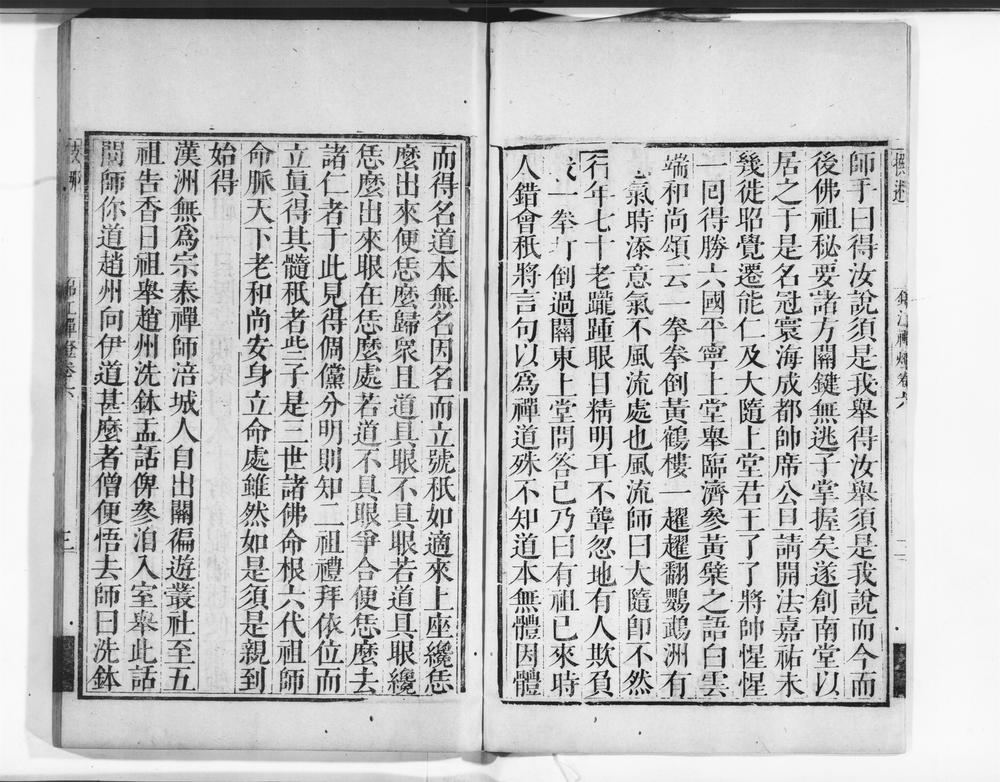 師于曰得汝說須是我舉得汝舉須是我說而今而
後佛祖秘要諸方關鍵無逃子掌握矣遂創南堂以
居之于是名冠寰海成都帥席公旦請開法嘉祐未
幾徙昭覺遷能仁及大隨上堂君王了了將帥惺惺
一回得勝六國平寧上堂舉臨濟參黃檗之語白雲
端和尚頌云一拳拳倒黃鶴樓一趯趯翻鸚鵡洲有
意氣時添意氣不風流處也風流師曰大隨卽不然
行年七十老躘踵眼目精明耳不聾忽地有人欺負
我一拳打倒過關東上堂問答已乃曰有祖已來時
人錯會秖將言句以爲禪道殊不知道本無體因體
而得名道本無名因名而立號秖如適來上座纔恁
麼出來便恁麼歸衆且道具眼不具眼若道具眼纔
恁麼出來眼在恁麼處若道不具眼爭合便恁麼去
諸仁者于此見得倜儻分明則知二祖禮拜依位而
立眞得其髓秖者些子是三世諸佛命根六代祖師
命脈天下老和尚安身立命處雖然如是須是親到
始得
漢洲無爲宗泰禪師涪城人自出關徧遊叢社至五
祖告香日祖舉趙州洗鉢盂話俾參洎入室舉此話
問師你道趙州向伊道甚麼者僧便悟去師曰洗鉢
錦江禪燈卷六
二
三